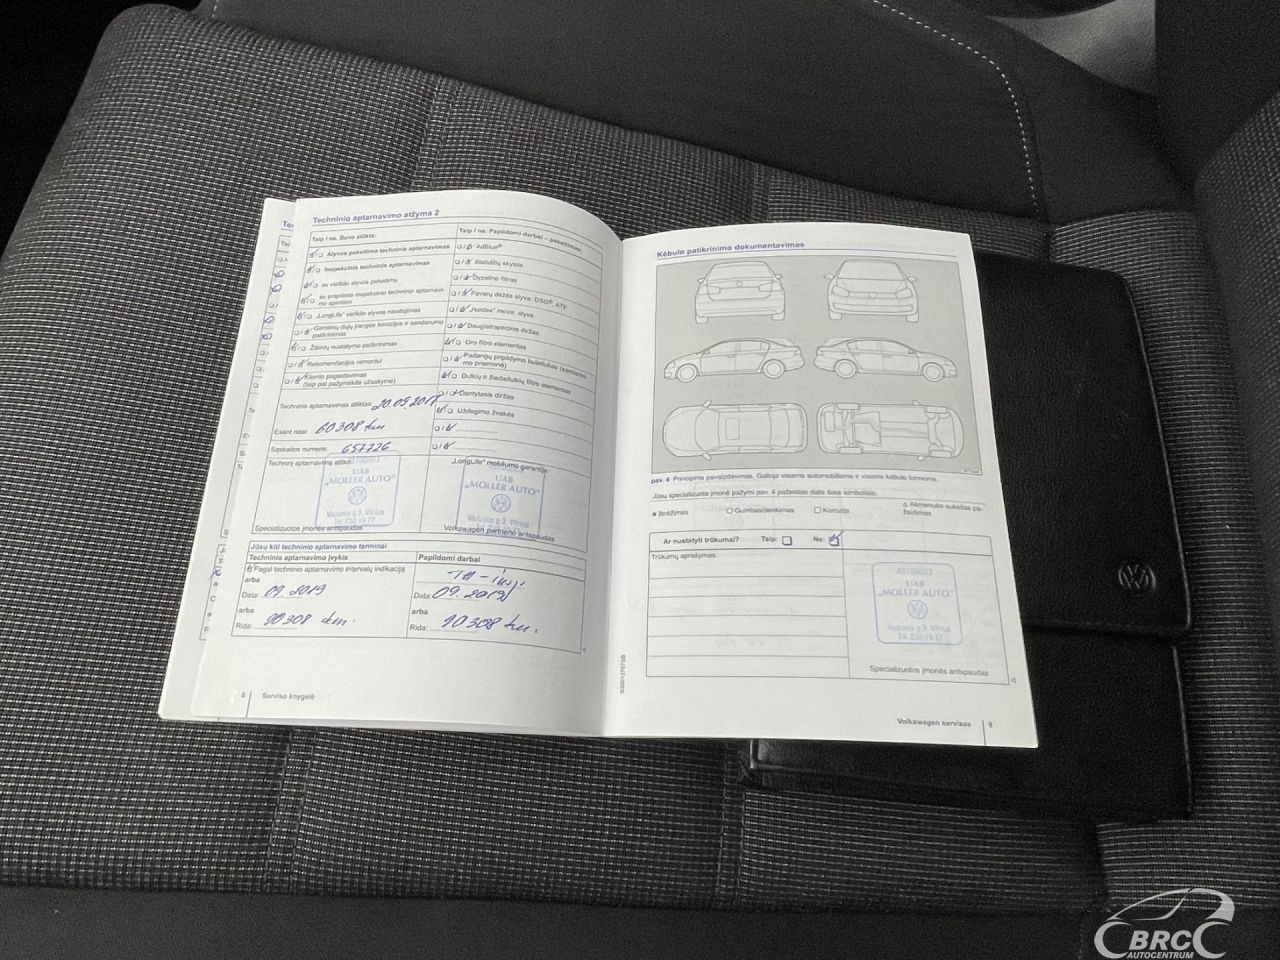 Techninio aptarnavimo atžyma 2
Taip / ne. Buvo atlikta:
Alyvos pakeitimo techninis aptarnavimas
Inspekcinis techninis aptarnavimas
su variklio alyvos pakeitimu
su praplėsta inspekcinio techninio aptarnavi-
mo apimtimi
„LongLife“ variklio alyvos naudojimas
Gamtinių dujų įrangos korozijos ir sandarumo
patikrinimas
Žibintų nustatymo patikrinimas
Rekomendacijos remontui
Kliento pageidavimas
(taip pat pažymėkite užsakyme)
Techninis aptarnavimas atliktas: 20.09.2017
Esant ridai: 60308 km
Sąskaitos numeris: 657726
Techninį aptarnavimą atliko
UAB
„MOLLER AUTO“
Specializuotos įmonės antspaudas
Taip / ne. Papildomi darbai – pakeitimas:
AdBlue®
Stabdžių skystis
Dyzelino filtras
Pavarų dėžės alyva: DSG® ATF
„Haldex“ mova alyva
Daugiatrapecinis diržas
Oro filtro elementas
Padangų pripildymo buteliukas (sandarini-
mo priemonė)
Dulkių ir žiedadulkių filtro elementas
Dantytasis diržas
Uždegimo žvakės
„LongLife“ mobilumo garantija
UAB
„MOLLER AUTO“
Volkswagen partnerio antspaudas
Jūsų kiti techninio aptarnavimo terminai
Techninio aptarnavimo įvykis
Pagal techninio aptarnavimo intervalų indikaciją
arba
Data: 09.2019
arba
Rida: 90308 km.
Papildomi darbai
Data: 09.2019
arba
Rida: 90308 km.
8 Serviso knygelė
Kėbulo patikrinimo dokumentavimas
pav. 4 Principinis pavaizdavimas. Galioja visiems automobiliams ir visoms kėbulo formoms.
Jūsų specializuota įmonė pažymi pav. 4 pažeistas dalis šiais simboliais:
x Įbrėžimas
Gumbas/įlenkimas
Korozija
Akmenuko sukeltas pa-
žeidimas
Ar nustatyti trūkumai? Taip: Ne:
Trūkumų aprašymas:
UAB
„MOLLER AUTO“
Specializuotos įmonės antspaudas
Volkswagen servisas 9
BRC
AUTOCENTRUM